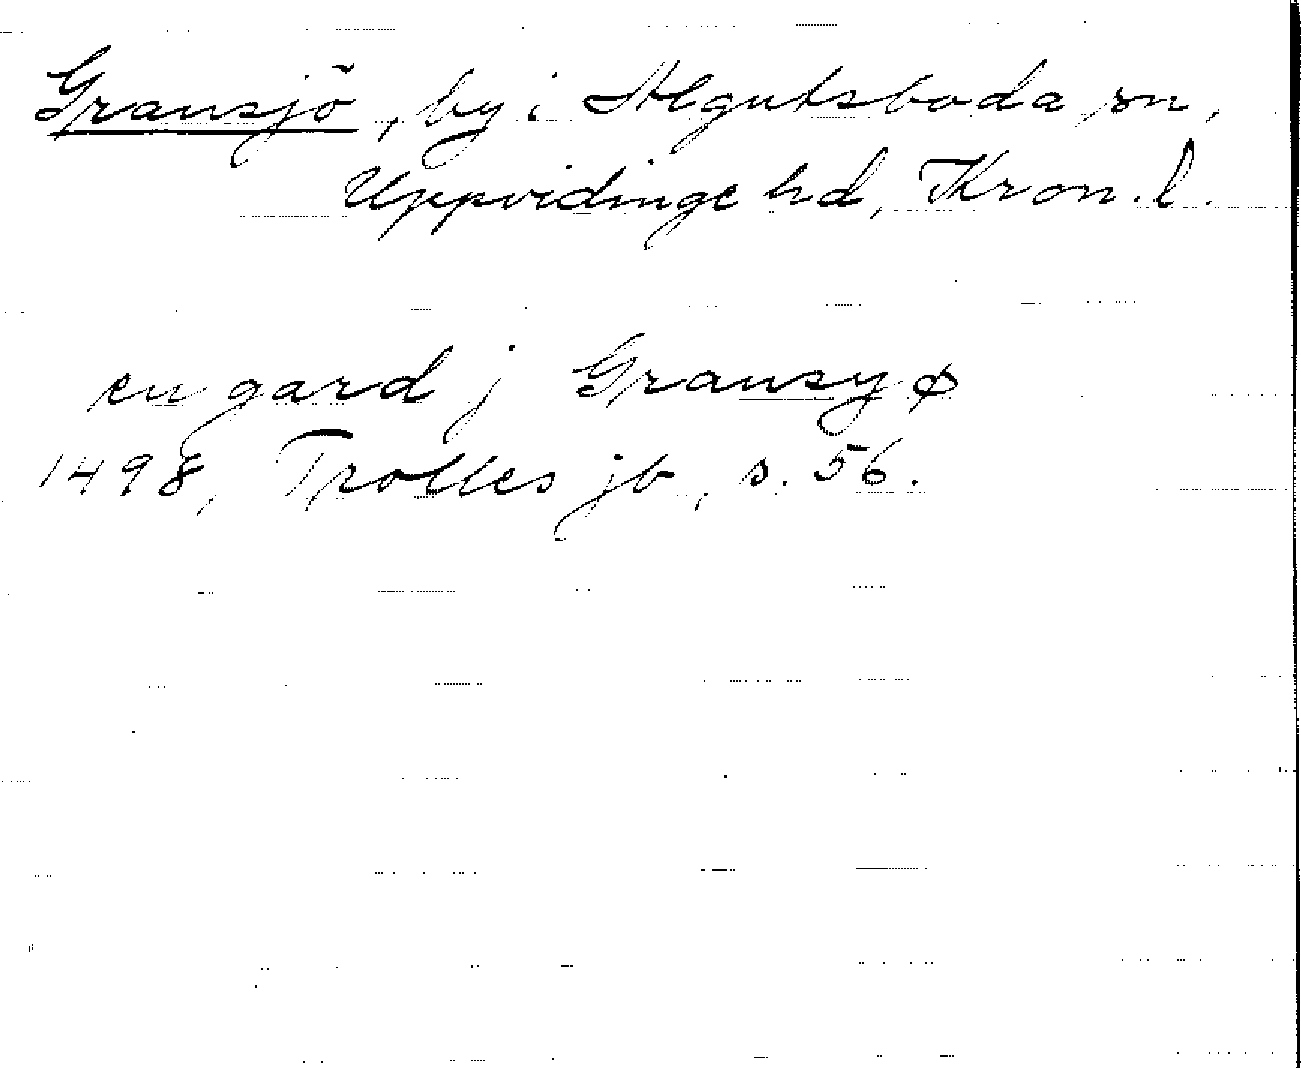 Gransjö, by i Algutsboda sn,
Uppvidinge hd, Kron. l.
en gard j Gransyø
1498, Trolles jb, s. 56.